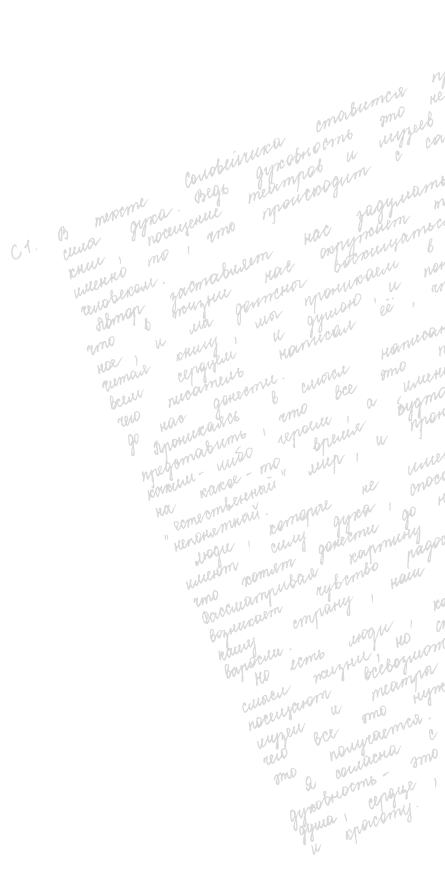 С1. В тексте Соловейчика ставится
сила духа. Ведь духовность это не
книг, посещение театров и музеев
именно то, что происходит с
человеком.
Автор заставляет нас задумать
что в жизни нас окружает
ное, и мы должны восхищаться
читая книгу, мы проникаем в
всем сердцем и душою, и
чего писатель написал её,
до нас донести.
Проникаясь в смысл написан
представить, что все это
каким-нибо героем, а
на какое-то время будто
"естественный" мир, и
"непонятный".
Люди, которые не
имеют силу духа,
что хотят донести до
Рассматривая картину
возникает чувство радос
нашу страну, наш
выросли.
Но есть люди,
смысл жизни, но
посещают всевозмож
музеи и театры
чего все это нуж
это получается.
Я согласна с
духовность - это
душа, сердце
и красоту.